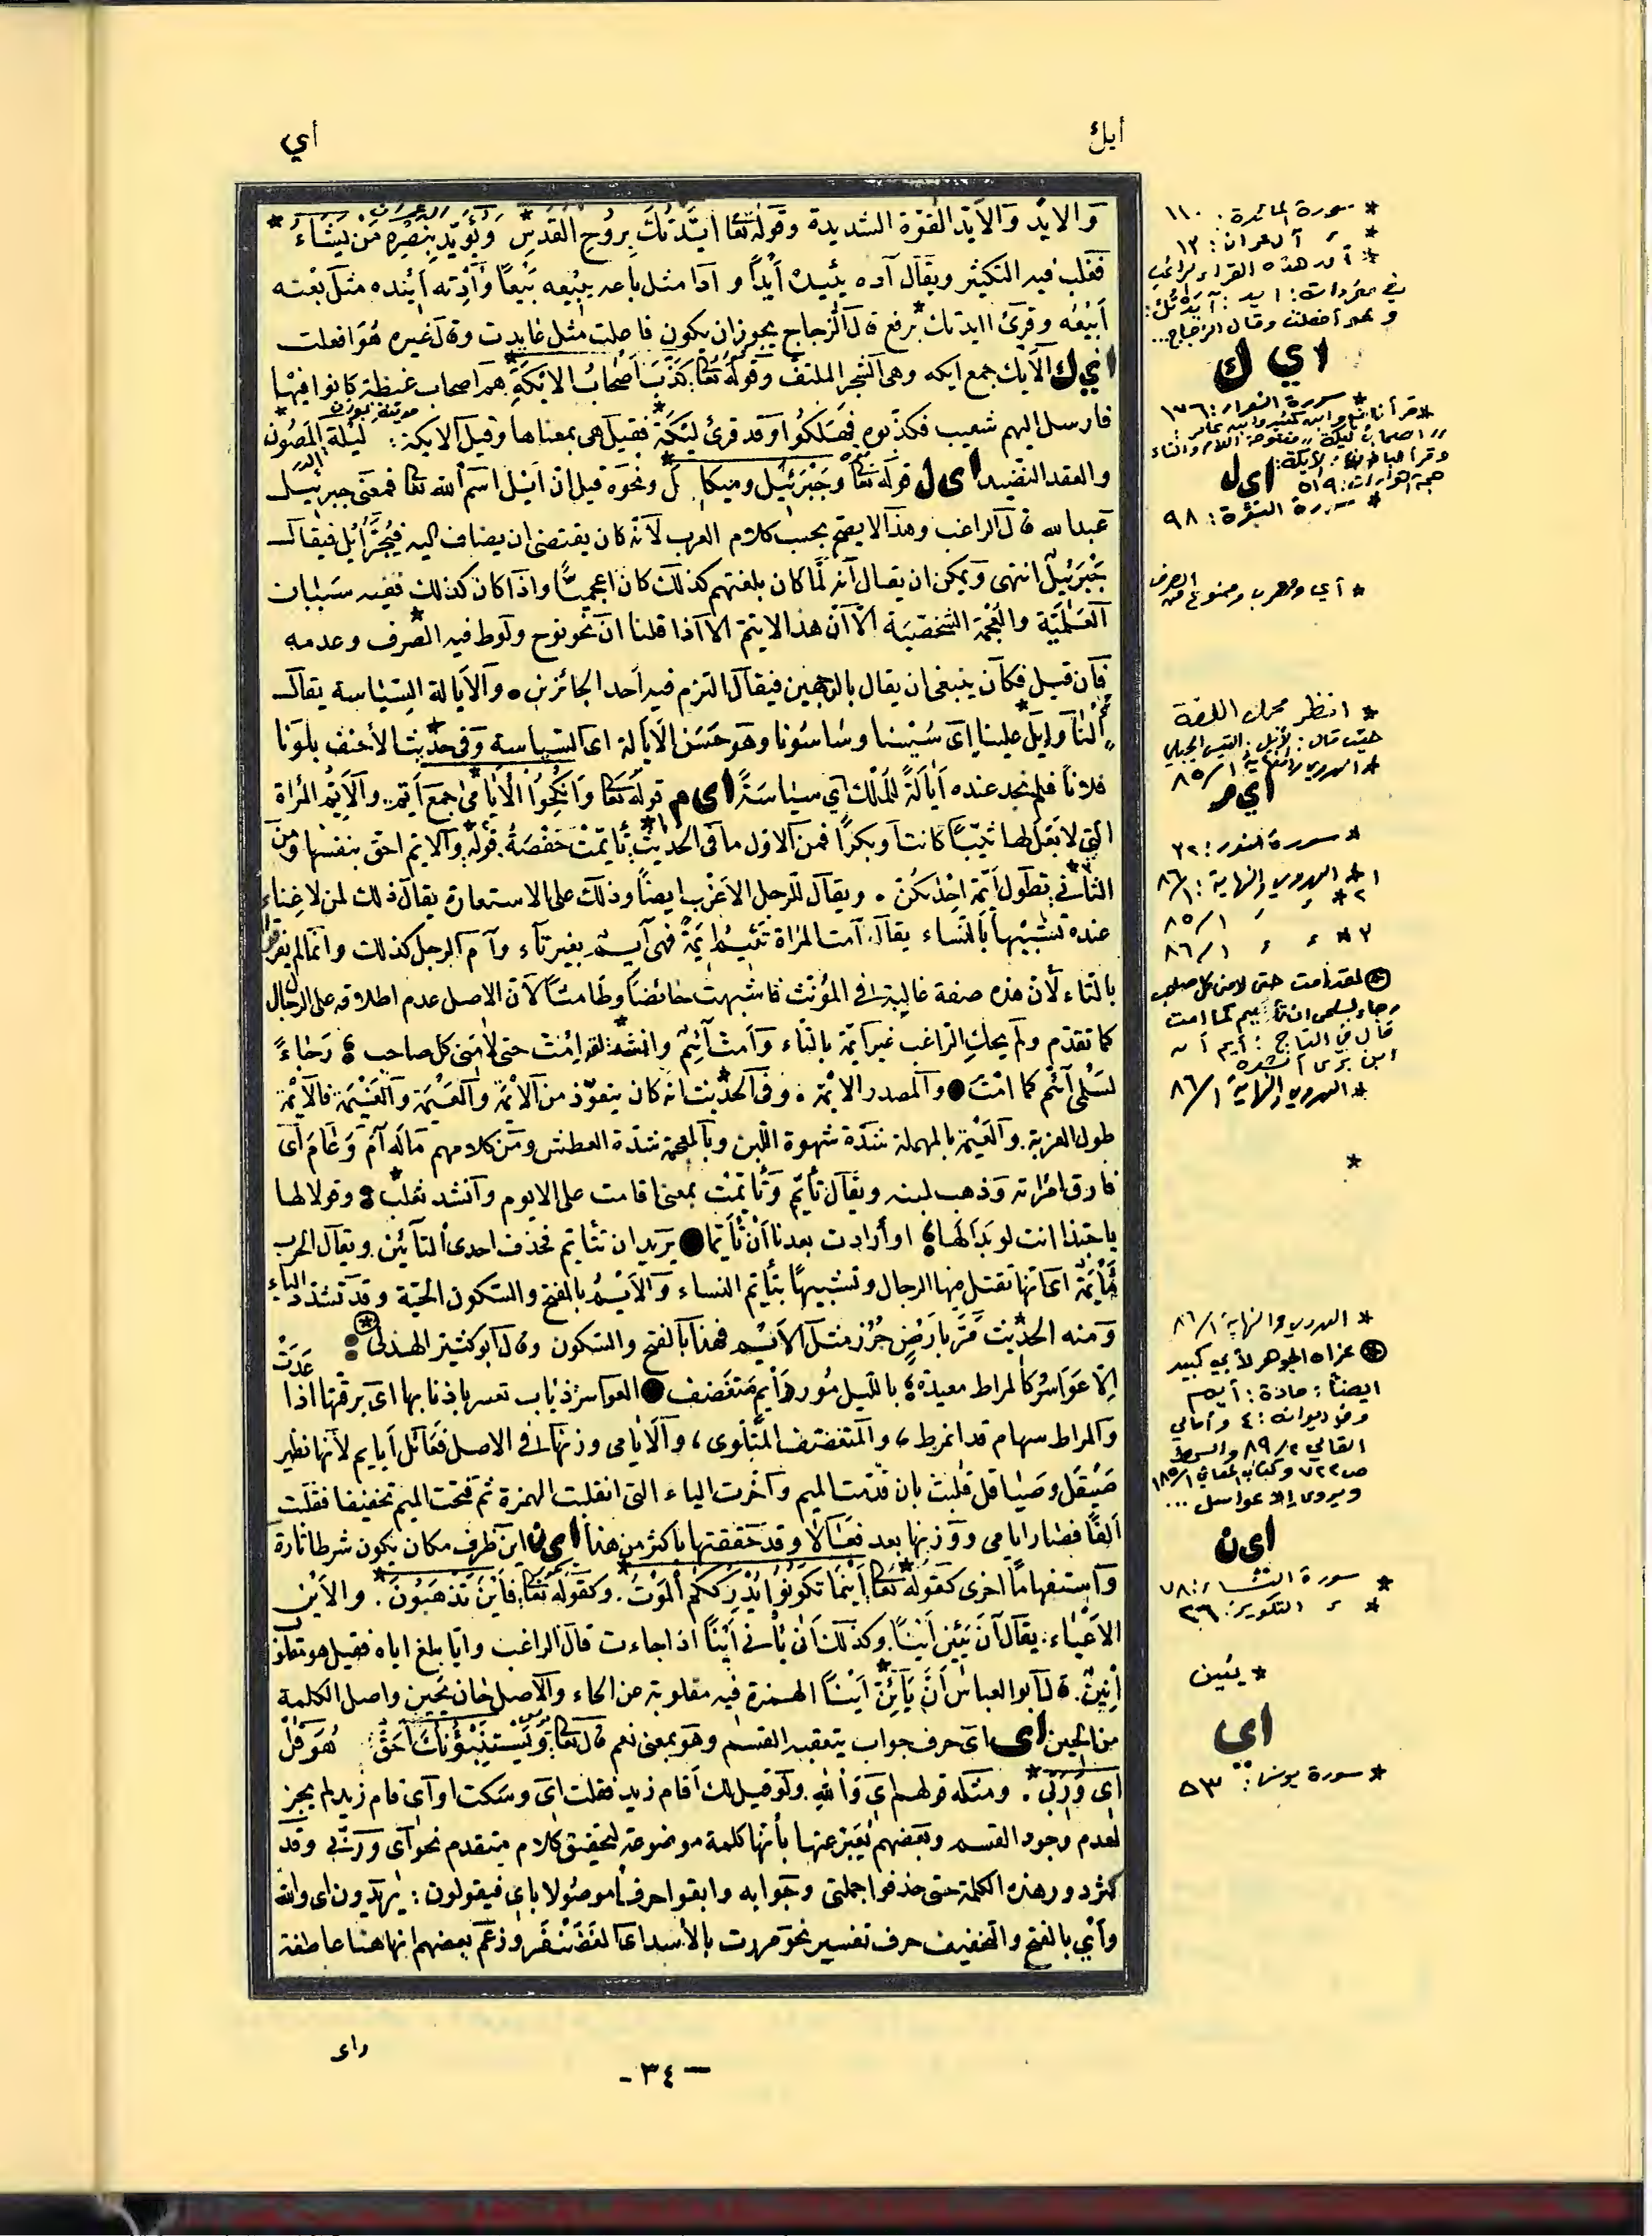 أيك
أي
والايد والآيد القوة الشديدة وقوله تعا ايّدتك بروح القدس * ويؤيد بنصره من يشاء *
فغلب فيه التكثير ويقال آده يئيده أيداً و آدا مثل باعه يبيعه بيعاً وأدته ائيده مثل بعته
أبيعُه وقرئ اايدتك * برفع قال الزجاج يجوز ان يكون فاعلت مثل عايدت وقال غيره هو افعلت
ا ي ك الأيك جمع ايكه وهى الشجر الملتف وقوله تعا كذب أصحاب الايكة هم اصحاب غيظة كانوا فيها
فارسل اليهم شعيب فكذبوه فهلكوا وقد قرئ ليكة فقيل هى بمعناها وقيل الايكة : ليلة المصون
والعقد النضيد ا ى ل قوله تعا وجبرئيل وميكال ونحوه قيل ان ائيل اسم الله تعا فمعنى جبرئيل
عبد الله قال الراغب وهذا لا يصح بحسب كلام العرب لأنه كان يقتضى ان يضاف اليه فيجر ائل فيقال
جبرئيل انتهى ويمكن ان يقال انه لما كان بلغتهم كذلك كان اعجميّاً واذا كان كذلك ففيه سببان
العلمية والعجمة الشخصية الا ان هذا لا يتم الا اذا قلنا ان نحو نوح ولوط فيه الصرف وعدمه
فان قيل فكان ينبغى ان يقال بالوجهين فيقال التزم فيه أحد الجائزين ٥ والايالة السياسة يقال
أُلنا وإيل علينا اى سُسنا وساسونا وهو حَسَن الايالة اى السياسة وفى حديث الأحنف بلونا
فلاناً فلم نجد عنده اٰيالةً للملك أي سياسَةً ا ى م قوله تعا وانكحوا الأيامى جمع أيم . والأيّم المرأة
التى لا بعل لها ثيّباً كانت او بكراً فمن الاول ما فى الحديث : تأيّمت حفصة . قوله والايم احق بنفسها ومن
الثانى : تطول أيمة احداكن . ويقال للرجل الاعزب ايضاً وذلك على الاستعارة يقال ذلك لمن لا غناء
عنده تشبيهاً بالنساء يقال آمت المرأة تئيم ايمة فهى أيم بغير تاء وآم الرجل كذلك وانما لم يفرق
بالتاء لأن هذه صفة غالبة فى المؤنث فاشبهت حائضاً وطامثاً لان الاصل عدم اطلاقه على الرجال
كما تقدم ولم يحكِ الراغب غير ايمة بالتاء وآمت أئيم وانشد : لقد إمت حتى لامنى كل صاحب ؛ رجاءً
لسلمى أئم كما امت ● والمصدر الايمة . وفى الحديث انه كان يتعوّذ من الايمة والعيمة والغيمة فالأيمة
طول العزبة . والعيمة بالمهملة شدة شهوة اللبن وبالمعجمة شدة العطش ومن كلامهم ماله آمَ وعَامَ أى
فارق امرأته وذهب لبنه ويقال تأيم وتأيمت بمعنى اقامت على الايوم وأنشد ثعلب : وقولا لها
يا حبذا انت لو بدا لها ؛ او أرادت بعدنا أن تأيّما ● يريد ان تتايم فحذف احدى التائين ويقال الحرب
مأيمة اى انها تقتل فيها الرجال وتشبيهاً بتأيم النساء والأيْم بالفتح والسكون الحيّة وقد تشدد الياء
ومنه الحديث مَرّ بأرضٍ جُرز مثل الأيْم فهذا بالفتح والسكون وقال ابو كثير الهذلى
إلا عواسر كالمراط معيدة ؛ بالليل مورد أيم متغضف ● العواسر ذئاب تعسر باذنابها اى برفعها اذا عدت
والمراط سهام قد انمرط ، والمتغضف المتلوى ، والأيامى وزنها فى الاصل فعائل أيايم لأنها نظير
صيقل وصياقل قلبت بان قدمت الميم وأخرت الياء التى انقلبت الهمزة ثم فتحت الميم تخفيفا فقلت
الفاً فصار ايامى ووزنها بعد فعالا وقد حققتها باكثر من هذا ا ى ن اين ظرف مكان يكون شرطا تارة
واستفهاماً اخرى كقوله تعا أينما تكونوا يدرككم الموت . وكقوله تعا : فاين تذهبون . والاين
الاعياء : يقال آن يئين أيناً . وكذلك أنى يأنى أيناً اذا جاءت قال الراغب وأنا بلغ اياه فقيل هو مقلوب
أنين . قال ابو العباس أن يأئن أيناً الهمزة فيه مقلوبة عن الحاء والاصل حان يحين واصل الكلمة
من الحين ا ى اى حرف جواب يتعقبه القسم وهو بمعنى نعم قال تعا ويستنبؤنك احق هو قل
اى وربى . ومثله قولهم اى والله ولو قيل لك أقام زيد فقلت اى وسكت او اى قام زيد لم يجز
لعدم وجود القسم وبعضهم يعبر عنها بأنها كلمة موضوعة لتحقيق كلام متقدم نحو اى وربّى وقد
كثر دور هذه الكلمة حتى حذفوا جملتى وجوابه وابقوا حرفاً موصولا باى فيقولون : يريدون اى والله
وأي بالفتح والتخفيف حرف تفسير نحو مررت بالأسد اى الغضنفر وزعم بعضهم انها هنا عاطفة
* سورة المائدة : ١١٠
* ، آل عمران : ١٣
ا ي ك
* سورة الشعراء : ١٧٦
ا ى ل
* سورة البقرة : ٩٨
* أي ومعرب وممنوع من الصرف
* انظر
* الهروي والنهاية ١/ ٨٥
ا ي م
* سورة النور : ٣٢
١ * الهروي والنهاية : ١/ ٨٦
٢ * ، ، ١/ ٨٥
٣ * ، ، ١/ ٨٦
قال في التاج : أيم
ابن بري أنشده
* الهروي والنهاية ١/ ٨٦
*
* الهروي والنهاية ١/ ٨٦
* عزاه الجوهر لأبي كبير
ايضاً : مادة : أيم
القالي ٢/ ٨٩ والسمط
ويروى إلا عواسل ...
ا ى ن
* سورة النساء : ٧٨
* ، التكوير : ٢٦
* يئين
ا ي
* سورة يونس : ٥٣
واى
- ٣٤ -